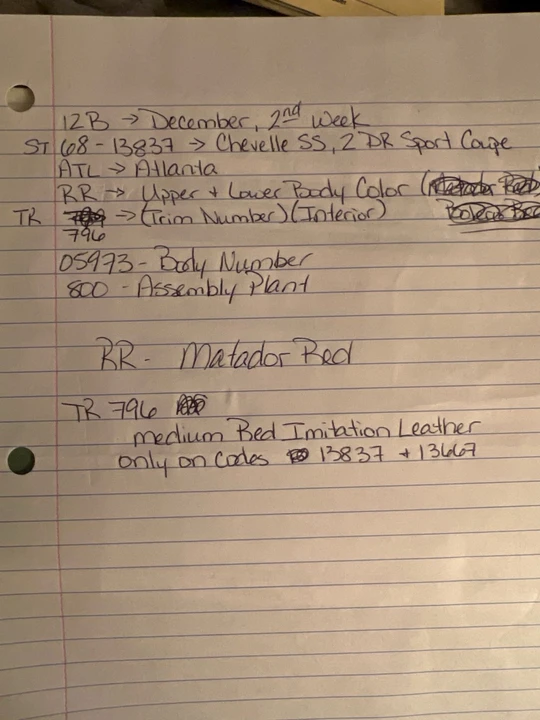 12B → December, 2nd Week
ST 68-13837 → Chevelle SS, 2 DR Sport Coupe
ATL → Atlanta
RR → Upper + Lower Body Color (
TR → (Trim Number) (Interior)
796
05973 - Body Number
800 - Assembly Plant
RR - Matador Red
TR 796
medium Red Imitation Leather
only on Codes 13837 + 13667